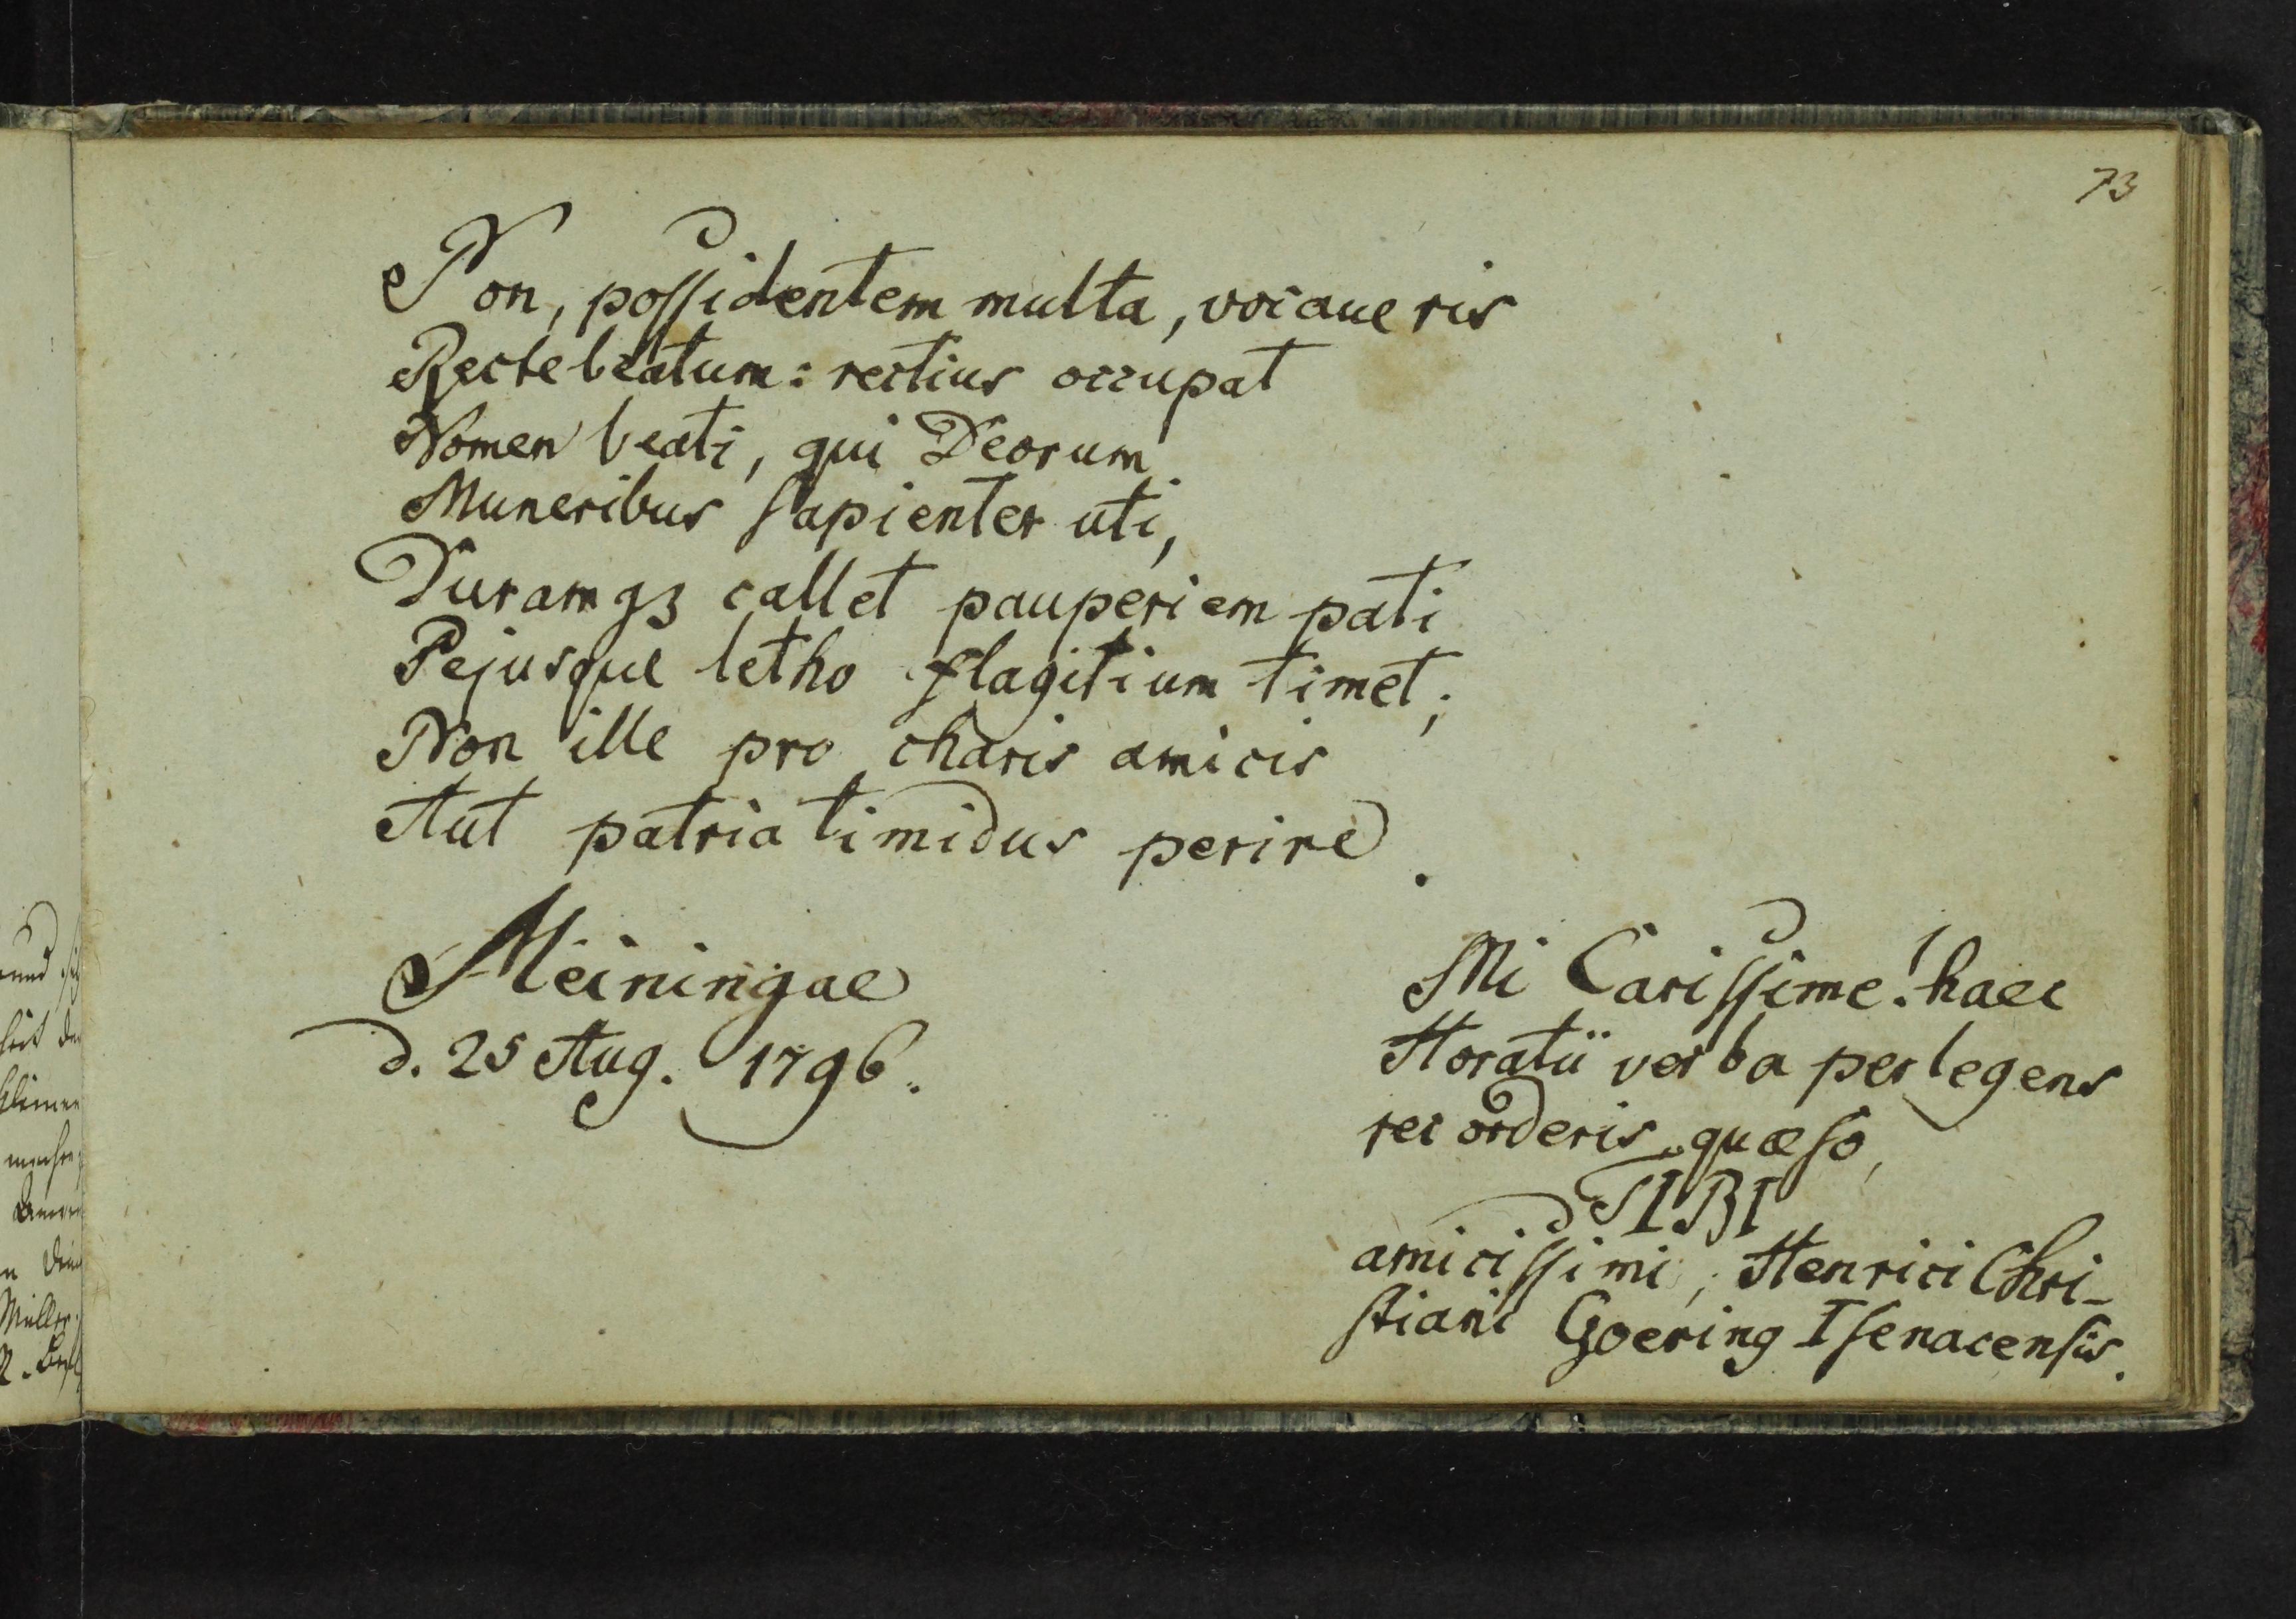 73
Non, poſſidentem multa, vocaueris
Recte beatum: rectius occupat
Nomen beati, qui Deorum
Muneribus ſapienter uti,
Duramqꝫ callet pauperiem pati
Pejusque letho flagitium timet;
Non ille pro charis amicis
Aut patria timidus perire.
Meiningae
d. 25 Aug. 1796.
Mi Cariſſime! haec
Horatii verba perlegens
recorderis quæſo,
TIBI
amiciſſimi, Henrici Chri-
ſtiani Goering Iſenacenſis.
und
Müller